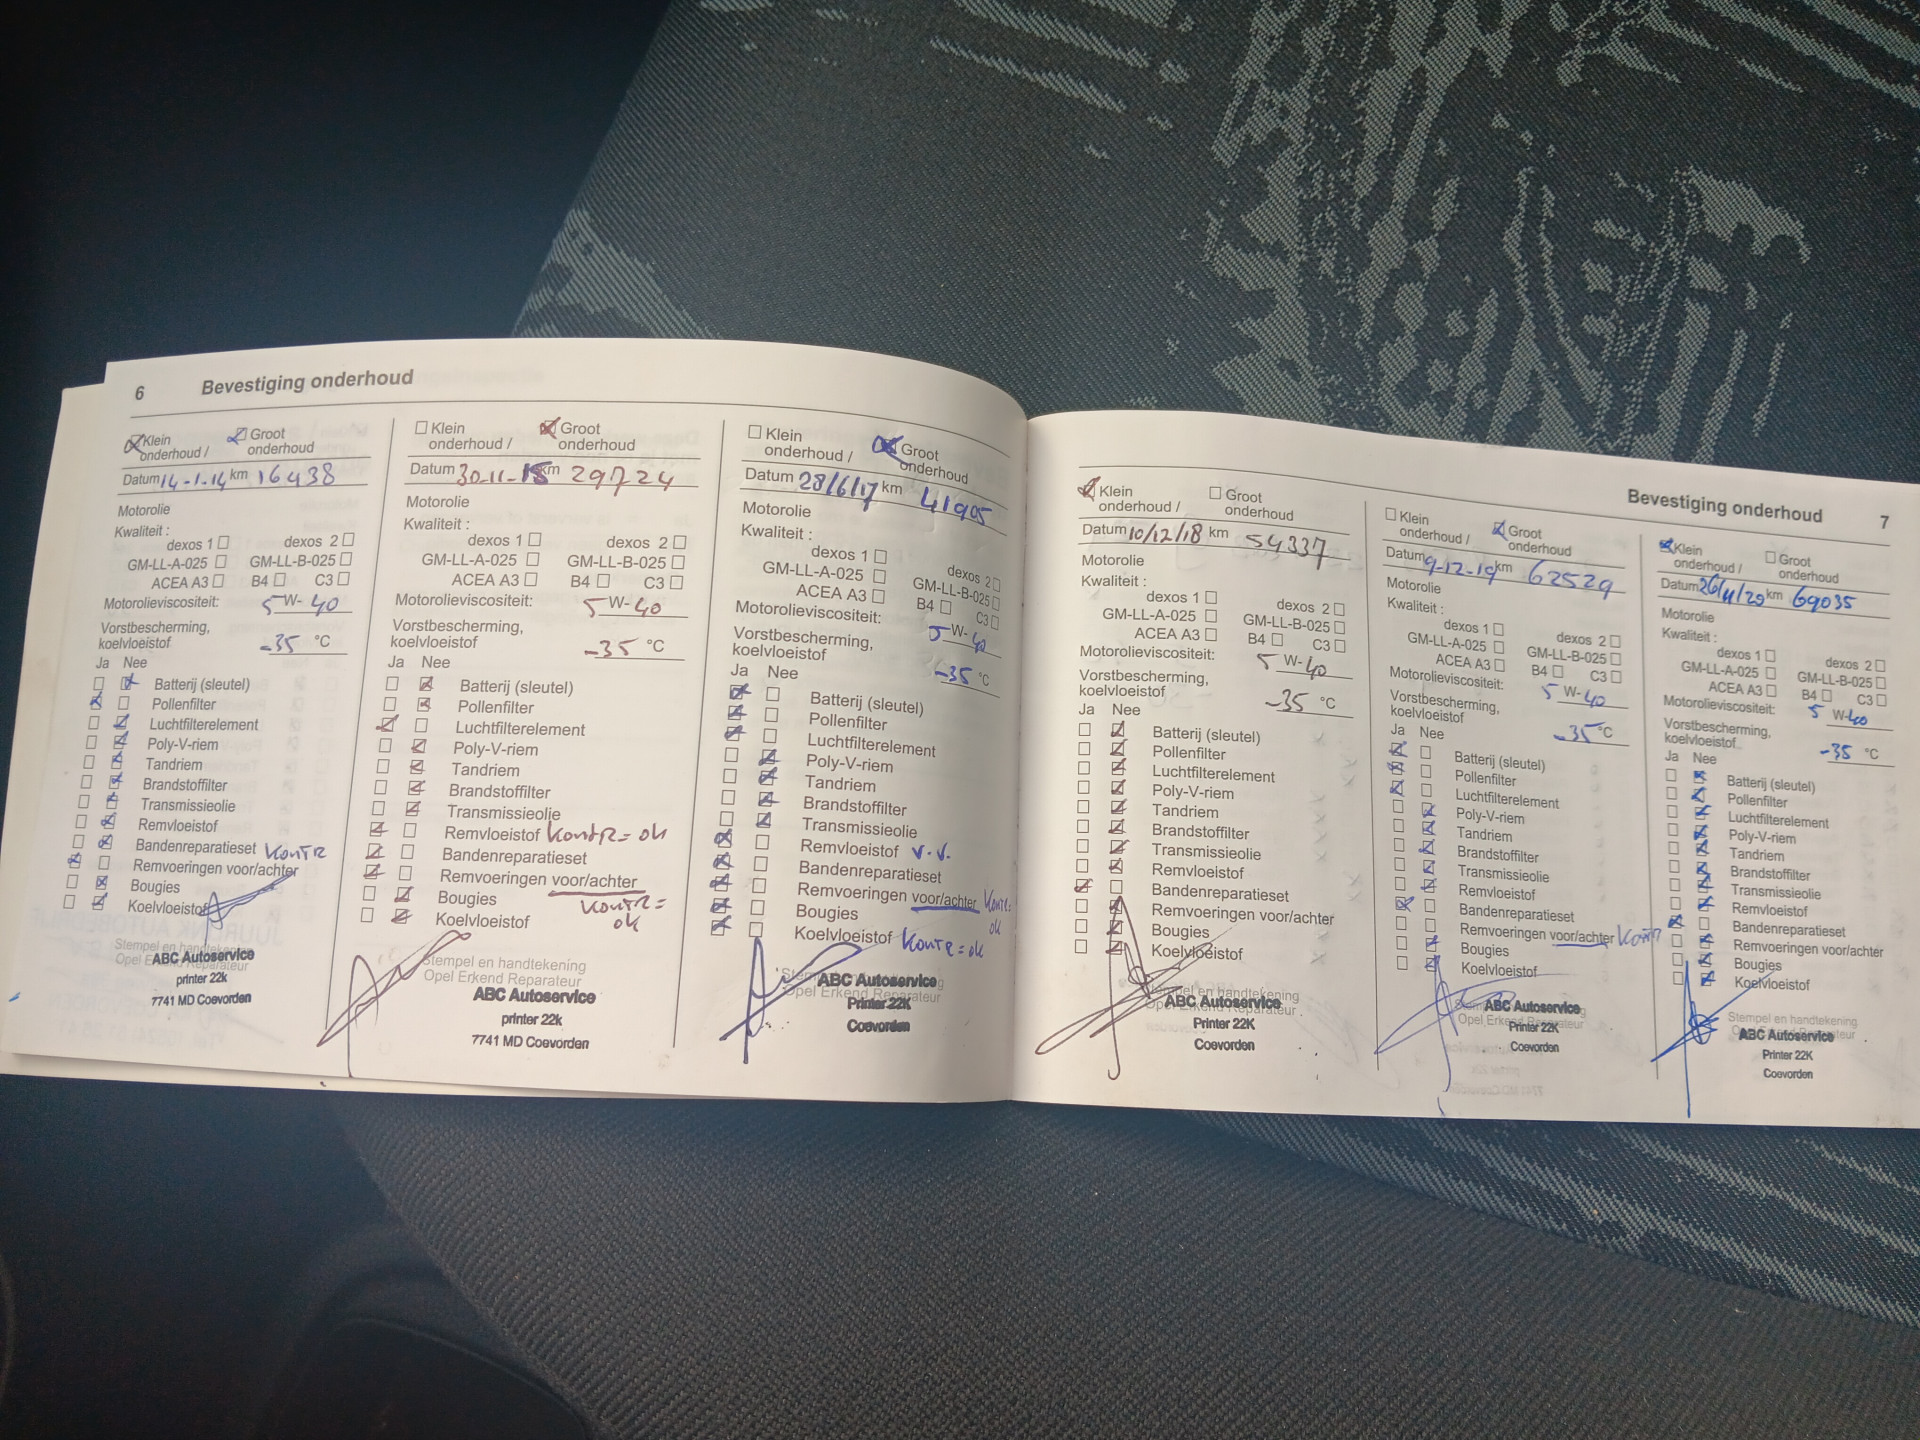 6 Bevestiging onderhoud
Klein onderhoud / Groot onderhoud
Datum 14-1-14 km 16438
Motorolie
Kwaliteit :
dexos 1 dexos 2
GM-LL-A-025 GM-LL-B-025
ACEA A3 B4 C3
Motorolieviscositeit: 5 W- 40
Vorstbescherming,
koelvloeistof -35 °C
Ja Nee
Batterij (sleutel)
Pollenfilter
Luchtfilterelement
Poly-V-riem
Tandriem
Brandstoffilter
Transmissieolie
Remvloeistof
Bandenreparatieset KONTR
Remvoeringen voor/achter
Bougies
Koelvloeistof
Stempel en handtekening
Opel Erkend Reparateur
ABC Autoservice
printer 22k
7741 MD Coevorden
Klein onderhoud / Groot onderhoud
Datum 30-11-15 km 29724
Motorolie
Kwaliteit :
dexos 1 dexos 2
GM-LL-A-025 GM-LL-B-025
ACEA A3 B4 C3
Motorolieviscositeit: 5 W- 40
Vorstbescherming,
koelvloeistof -35 °C
Ja Nee
Batterij (sleutel)
Pollenfilter
Luchtfilterelement
Poly-V-riem
Tandriem
Brandstoffilter
Transmissieolie
Remvloeistof KONTR = ok
Bandenreparatieset
Remvoeringen voor/achter
Bougies KONTR =
Koelvloeistof ok
Stempel en handtekening
Opel Erkend Reparateur
ABC Autoservice
printer 22k
7741 MD Coevorden
Klein onderhoud / Groot onderhoud
Datum 28/6/17 km 41905
Motorolie
Kwaliteit :
dexos 1 dexos 2
GM-LL-A-025 GM-LL-B-025
ACEA A3 B4 C3
Motorolieviscositeit: 5 W- 40
Vorstbescherming,
koelvloeistof -35 °C
Ja Nee
Batterij (sleutel)
Pollenfilter
Luchtfilterelement
Poly-V-riem
Tandriem
Brandstoffilter
Transmissieolie
Remvloeistof v.v.
Bandenreparatieset
Remvoeringen voor/achter KONTR =
Bougies ok
Koelvloeistof KONTR = ok
Stempel en handtekening
Opel Erkend Reparateur
ABC Autoservice
Printer 22K
Coevorden
Bevestiging onderhoud 7
Klein onderhoud / Groot onderhoud
Datum 10/12/18 km 54337
Motorolie
Kwaliteit :
dexos 1 dexos 2
GM-LL-A-025 GM-LL-B-025
ACEA A3 B4 C3
Motorolieviscositeit: 5 W- 40
Vorstbescherming,
koelvloeistof -35 °C
Ja Nee
Batterij (sleutel)
Pollenfilter
Luchtfilterelement
Poly-V-riem
Tandriem
Brandstoffilter
Transmissieolie
Remvloeistof
Bandenreparatieset
Remvoeringen voor/achter
Bougies
Koelvloeistof
Stempel en handtekening
Opel Erkend Reparateur
ABC Autoservice
Printer 22K
Coevorden
Klein onderhoud / Groot onderhoud
Datum 9-12-19 km 62529
Motorolie
Kwaliteit :
dexos 1 dexos 2
GM-LL-A-025 GM-LL-B-025
ACEA A3 B4 C3
Motorolieviscositeit: 5 W- 40
Vorstbescherming,
koelvloeistof -35 °C
Ja Nee
Batterij (sleutel)
Pollenfilter
Luchtfilterelement
Poly-V-riem
Tandriem
Brandstoffilter
Transmissieolie
Remvloeistof
Bandenreparatieset
Remvoeringen voor/achter KONTR
Bougies
Koelvloeistof
Stempel en handtekening
Opel Erkend Reparateur
ABC Autoservice
Printer 22K
Coevorden
Klein onderhoud / Groot onderhoud
Datum 26/11/20 km 69035
Motorolie
Kwaliteit :
dexos 1 dexos 2
GM-LL-A-025 GM-LL-B-025
ACEA A3 B4 C3
Motorolieviscositeit: 5 W- 40
Vorstbescherming,
koelvloeistof -35 °C
Ja Nee
Batterij (sleutel)
Pollenfilter
Luchtfilterelement
Poly-V-riem
Tandriem
Brandstoffilter
Transmissieolie
Remvloeistof
Bandenreparatieset
Remvoeringen voor/achter
Bougies
Koelvloeistof
Stempel en handtekening
Opel Erkend Reparateur
ABC Autoservice
Printer 22K
Coevorden